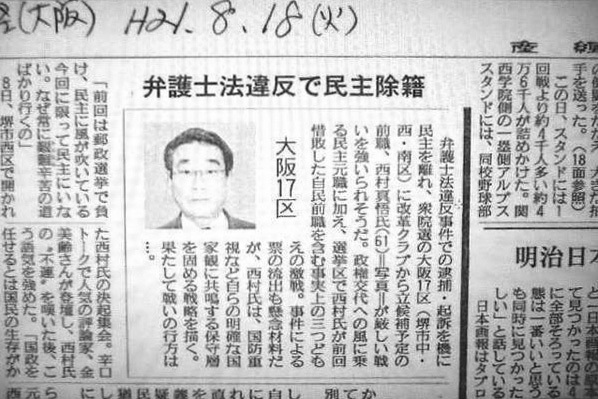 (大阪) H21.8.18(火)
産経
弁護士法違反で民主除籍
大阪17区
弁護士法違反事件での逮捕・起訴を機に
民主を離れ、衆院選の大阪17区(堺市中・
西・南区)に改革クラブから立候補予定の
前職、西村真悟氏(61)=写真=が厳しい戦
いを強いられそうだ。政権交代への風に乗
る民主元職に加え、選挙区で西村氏が前回
惜敗した自民前職を含む事実上の三つども
えの激戦。事件による
票の流出も懸念材料だ
が、西村氏は、国防重
視など自らの明確な国
家観に共鳴する保守層
を固める戦略を描く。
果たして戦いの行方は
…。
「前回は郵政選挙で負
け、民主に風が吹いている
今回に限って民主にいな
い。なぜ常に艱難辛苦の道
ばかり行くの」
8日、堺市西区で開かれ
た西村氏の決起集会。辛口
トークで人気の評論家、金
美齢さんが登壇し、西村氏
の“不運”を嘆いた後、こ
う語気を強めた。「国政を
任せるとは国民の生存がか
手を送った。(18面参照)
この日、スタンドには1
回戦より約4千人多い約4
万6千人が詰めかけた。関
西学院側の一塁側アルプス
スタンドには、同校野球部
明治日本
と「日本画報の原本
て見つかったのは4
に全部そろっている
態は一番いいと思う
も同時に見つかった
しい」と話している
日本画報はタブロ